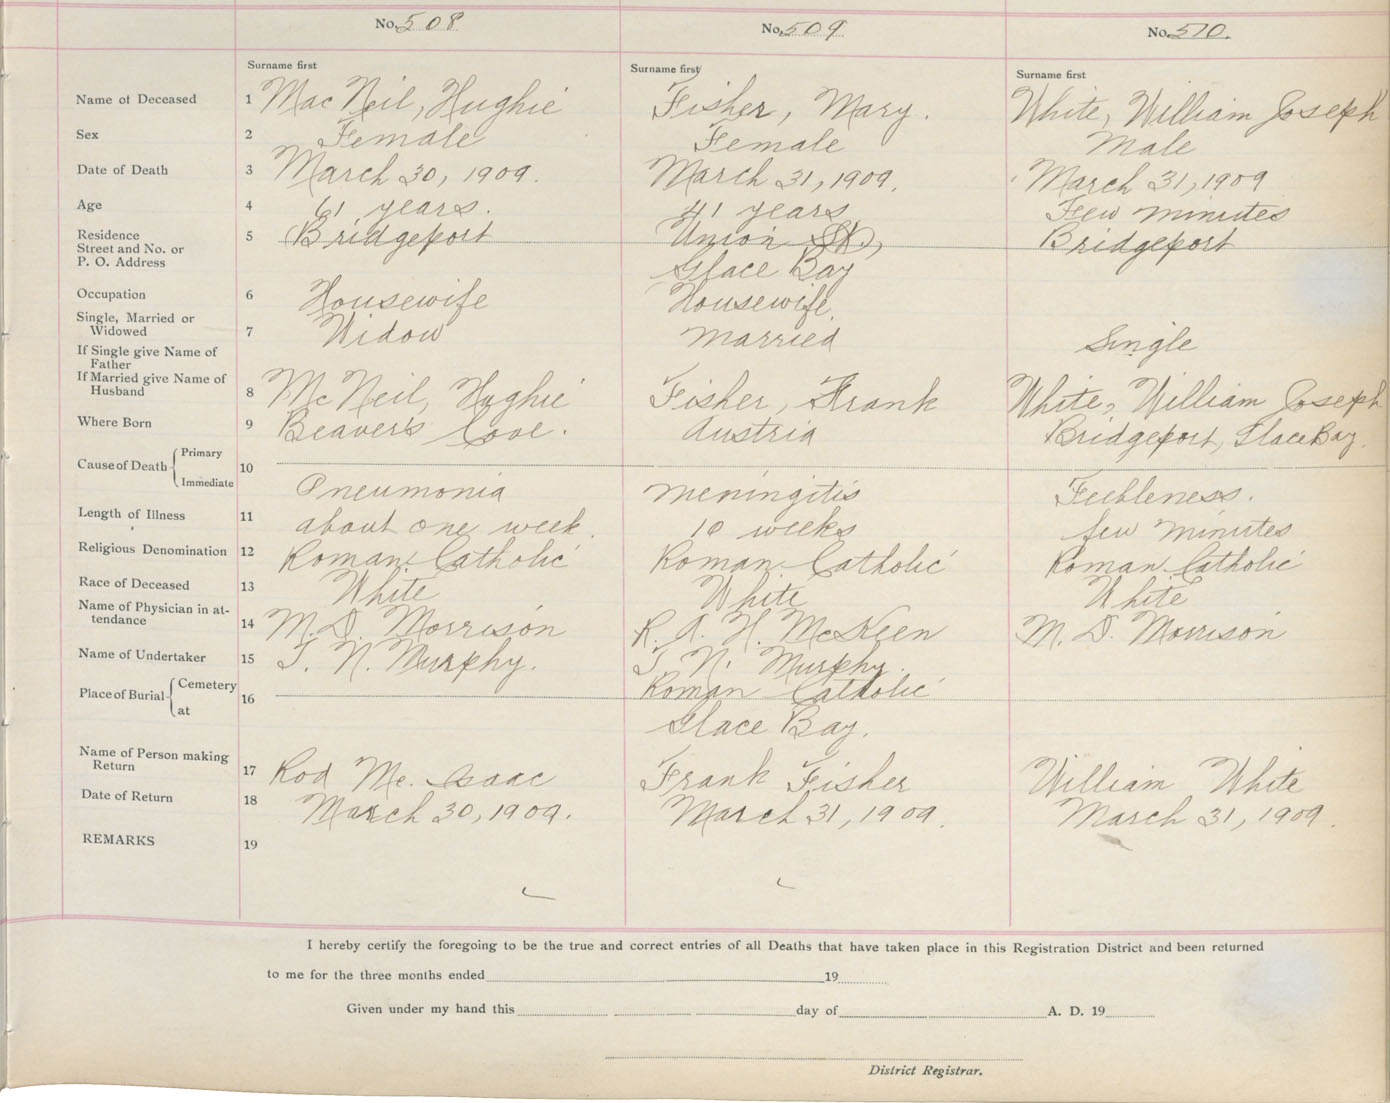 No. 508 No. 509 No. 510.
Surname first Surname first Surname first
Name of Deceased 1 MacNeil, Hughie Fisher, Mary. White, William Joseph
Sex 2 Female Female Male
Date of Death 3 March 30, 1909. March 31, 1909. March 31, 1909
Age 4 61 years. 41 years Few minutes
Residence
Street and No. or
P. O. Address 5 Bridgeport Union St., Bridgeport
Glace Bay
Occupation 6 Housewife Housewife
Single, Married or
Widowed 7 Widow Married Single
If Single give Name of
Father
If Married give Name of
Husband 8 McNeil, Hughie Fisher, Frank White, William Joseph
Where Born 9 Beaver's Cove. Austria Bridgeport, Glace Bay.
Cause of Death Primary
Immediate 10 Pneumonia Meningitis Feebleness.
Length of Illness 11 about one week. 10 weeks few minutes
Religious Denomination 12 Roman Catholic Roman Catholic Roman Catholic
Race of Deceased 13 White White White
Name of Physician in at-
tendance 14 M. D. Morrison R. A. H. McKeen M. D. Morrison
Name of Undertaker 15 T. N. Murphy. T. N. Murphy.
Place of Burial Cemetery
at 16 Roman Catholic
Glace Bay.
Name of Person making
Return 17 Rod Mc. Isaac Frank Fisher William White
Date of Return 18 March 30, 1909. March 31, 1909. March 31, 1909.
REMARKS 19
I hereby certify the foregoing to be the true and correct entries of all Deaths that have taken place in this Registration District and been returned
to me for the three months ended 19
Given under my hand this day of A. D. 19
District Registrar.